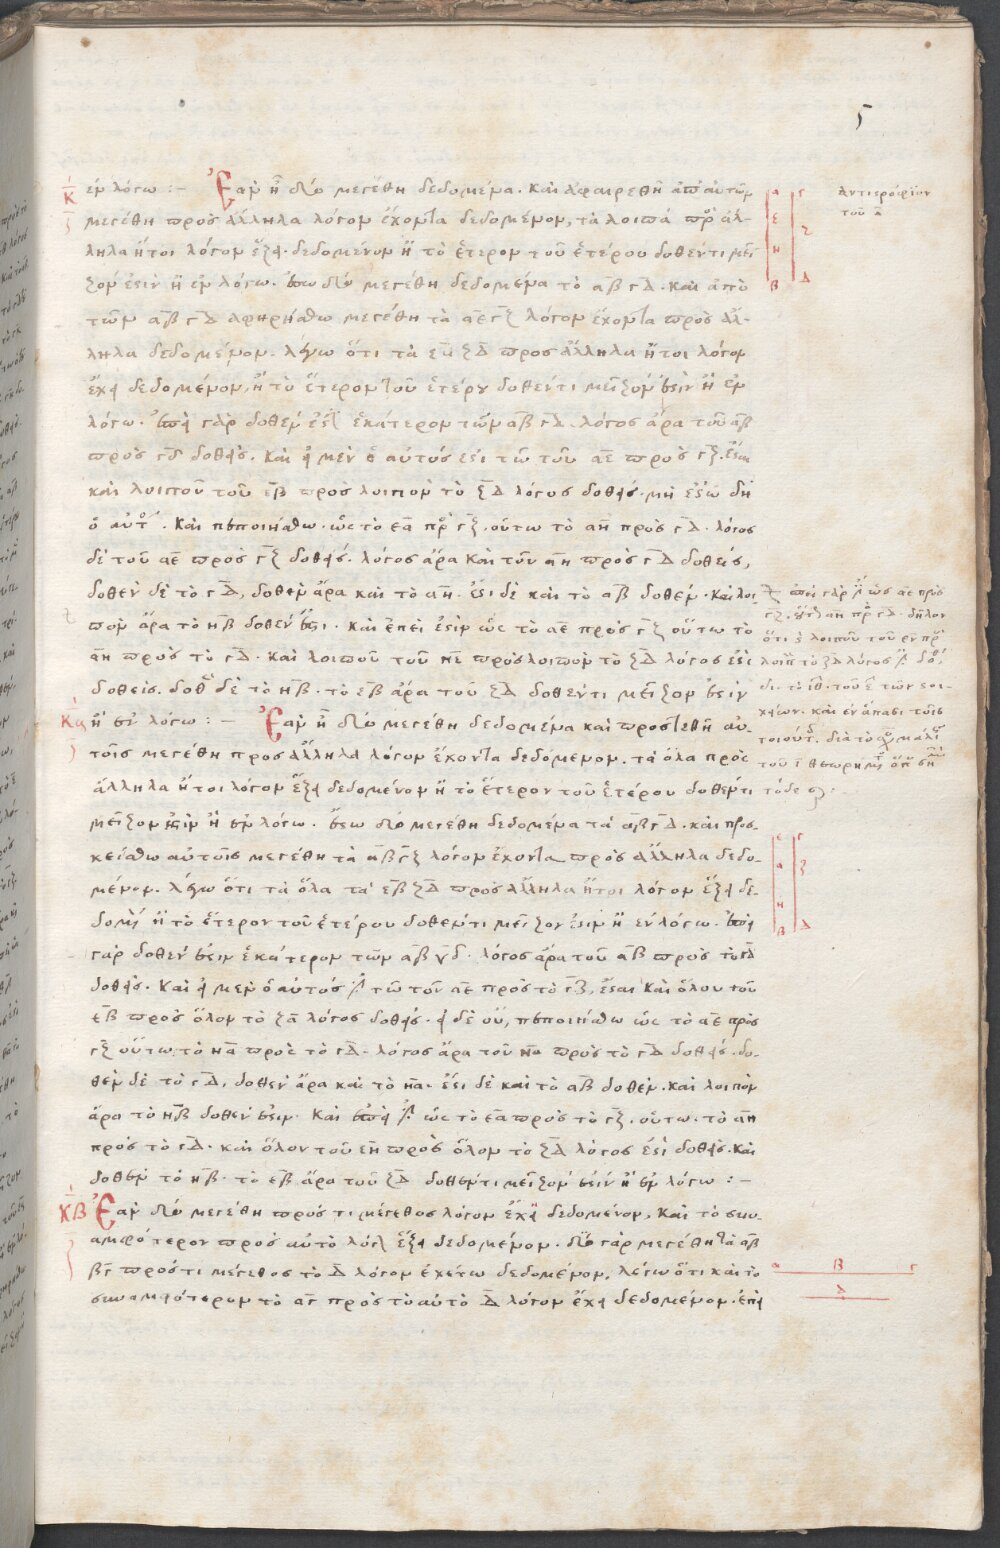 5
κ ἐν λόγω : – Ἐὰν ἦ δύο μεγέθη δεδομένα. καὶ ἀφαιρεθῆ ἀπ' αὐτῶν
μεγέθη πρὸς ἄλληλα λόγον ἔχοντα δεδομένον, τὰ λοιπὰ πρὸς ἄλ-
ληλα ἤτοι λόγον ἕξει δεδομένον ἢ τὸ ἕτερον τοῦ ἑτέρου δοθέντι μεῖ
ζον ἐστὶν ἢ ἐν λόγω. ἔστω δύο μεγέθη δεδομένα τὸ αβ γδ. καὶ ἀπὸ
τῶν αβ γδ ἀφηρήσθω μεγέθη τὰ αε γζ λόγον ἔχοντα πρὸς ἄλ-
ληλα δεδομένον. λέγω ὅτι τὰ εβ ζδ προς ἄλληλα ἤτοι λόγον
ἔχει δεδομένον, ἢ τὸ ἕτερον τοῦ ἑτέρου δοθέντι μεῖζόν ἐστιν ἢ ἐν
λόγω. ἐπεὶ γὰρ δοθέν ἐστι ἑκάτερον τῶν αβ γδ. λόγος ἄρα τοῦ αβ
πρὸς γδ δοθείς. καὶ εἰ μὲν ὁ αὐτός ἐστι τῶ τοῦ αε πρὸς γζ. ἔσται
καὶ λοιποῦ τοῦ εβ πρὸς λοιπὸν τὸ ζδ λόγος δοθείς. μὴ ἔστω δὴ
ὁ αὐτός. καὶ πεποιήσθω. ὡς τὸ εα πρὸς γζ. οὕτω τὸ αη πρὸς γδ. λόγος
δὲ τοῦ αε πρὸς γζ δοθείς. λόγος ἄρα καὶ τοῦ αη πρὸς γδ δοθείς,
δοθὲν δὲ τὸ γδ, δοθὲν ἄρα καὶ τὸ αη. ἔστι δὲ καὶ τὸ αβ δοθέν. καὶ λοι
πὸν ἄρα τὸ ηβ δοθέν ἐστι. καὶ ἐπεί ἐστιν ὡς τὸ αε πρὸς γζ οὕτω τὸ
αη πρὸς τὸ γδ. καὶ λοιποῦ τοῦ ηε πρὸς λοιπὸν τὸ ζδ λόγος ἐστὶ
δοθείς. δοθὲν δὲ τὸ ηβ. τὸ εβ ἄρα τοῦ ζδ δοθέντι μεῖζον ἐστὶν
κα ἢ ἐν λόγω : – Ἐὰν ἦ δύο μεγέθη δεδομένα καὶ προστεθῆ αὐ-
τοῖς μεγέθη προς ἄλληλα λόγον ἔχοντα δεδομένον. τὰ ὅλα πρὸς
ἄλληλα ἤτοι λόγον ἕξει δεδομένον ἢ τὸ ἕτερον τοῦ ἑτέρου δοθέντι
μεῖζον ἐστὶν ἢ ἐν λόγω. ἔστω δύο μεγέθη δεδομένα τὰ αβ γδ. καὶ προσ-
κείσθω αὐτοῖς μεγέθη τὰ αβ γζ λόγον ἔχοντα πρὸς ἄλληλα δεδο-
μένον. λέγω ὅτι τὰ ὅλα τὰ εβ ζδ πρὸς ἄλληλα ἤτοι λόγον ἕξει δε-
δομένον ἢ τὸ ἕτερον τοῦ ἑτέρου δοθέντι μεῖζον ἐστιν ἢ ἐν λόγω. ἐπεὶ
γὰρ δοθέν ἐστιν ἑκάτερον τῶν αβ γδ. λόγος ἄρα τοῦ αβ πρὸς τὸ γδ
δοθείς. καὶ εἰ μὲν ὁ αὐτός ἐστι τῶ τοῦ αε πρὸς τὸ γζ, ἔσται καὶ ὅλου τοῦ
εβ πρὸς ὅλον τὸ ζδ λόγος δοθείς. εἰ δὲ οὔ, πεποιήσθω ὡς τὸ αε πρὸς
γζ οὕτω τὸ ηα πρὸς τὸ γδ. λόγος ἄρα τοῦ ηα πρὸς τὸ γδ δοθείς. δο-
θὲν δὲ τὸ γδ, δοθὲν ἄρα καὶ τὸ ηα. ἔστι δὲ καὶ τὸ αβ δοθέν. καὶ λοιπὸν
ἄρα τὸ ηβ δοθέν ἐστιν. καὶ ἐπεί ἐστιν ὡς τὸ εα πρὸς τὸ γζ. οὕτω. τὸ αη
πρὸς τὸ γδ. καὶ ὅλου τοῦ εη πρὸς ὅλον τὸ ζδ λόγος ἐστὶ δοθείς. καὶ
δοθὲν τὸ ηβ. τὸ εβ ἄρα τοῦ ζδ δοθέντι μεῖζόν ἐστίν ἢ ἐν λόγω : –
κβ Ἐὰν δύο μεγέθη πρός τι μέγεθος λόγον ἔχη δεδομένον, καὶ τὸ συν-
αμφότερον πρὸς αὐτὸ λόγον ἕξει δεδομένον. δύο γὰρ μεγέθη τὰ αβ
βγ πρός τι μέγεθος τὸ δ λόγον ἐχέτω δεδομένον, λέγω ὅτι καὶ τὸ
συναμφότερον τὸ αγ πρὸς τὸ αὐτὸ δ λόγον ἔχει δεδομένον. ἐπεὶ
ἀντιστρόφιον
τοῦ
ἐπεὶ γὰρ ἐστι ὡς αε πρὸς
γζ. αη πρὸς γδ. δῆλον
ὅτι λοιποῦ τοῦ πρὸς
λοιπὸν τὸ ζδ λόγος ἐστι
διὰ τὸ ιθ. τοῦ ε τῶν στοι-
χείων. καὶ ἐν ἅπασι τοῖς
τοιούτοις. διὰ τὸ
τοῦ θεωρήματος
τόδε
α γ
ε ζ
η
β δ
ε γ
α ζ
η
β δ
α β γ
δ